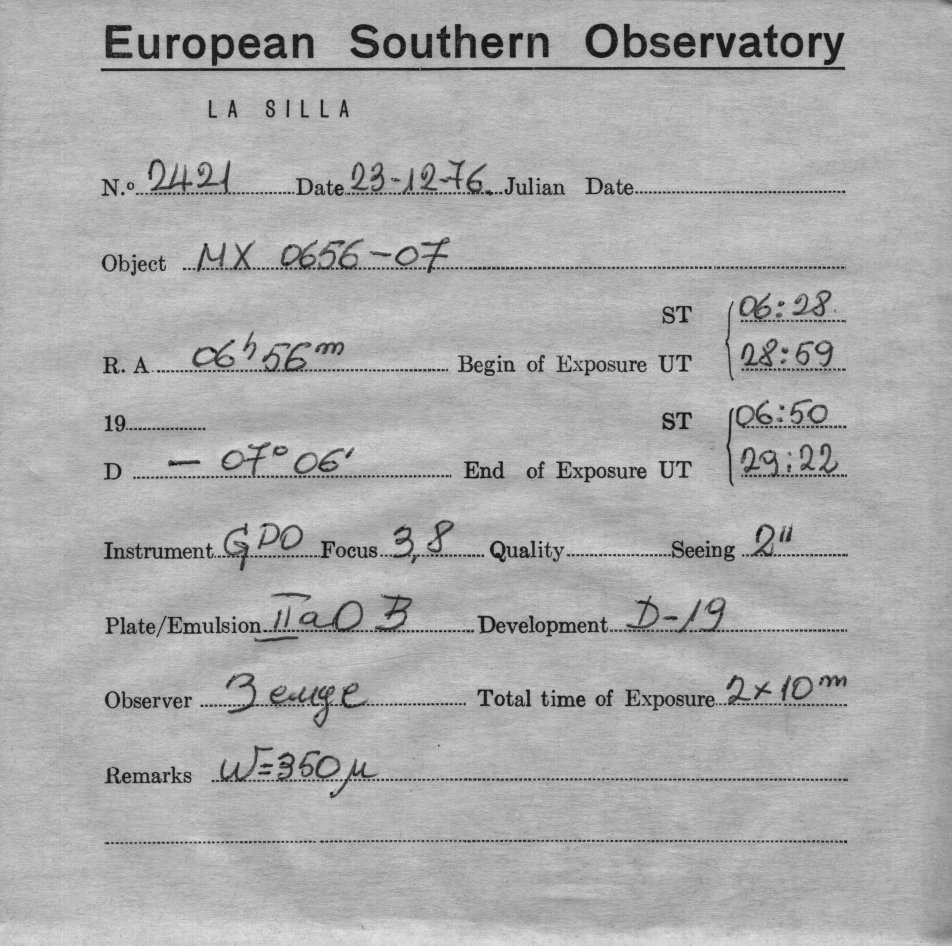 European Southern Observatory
LA SILLA
N.º 2421 Date 23-12-76. Julian Date
Object MX 0656-07
ST 06:28
R. A 06h 56m Begin of Exposure UT 28:59
19 ST 06:50
D - 07° 06' End of Exposure UT 29:22
Instrument GPO Focus 3,8 Quality Seeing 2"
Plate/Emulsion IIaO B Development D-19
Observer Total time of Exposure 2x10m
Remarks W=350μ